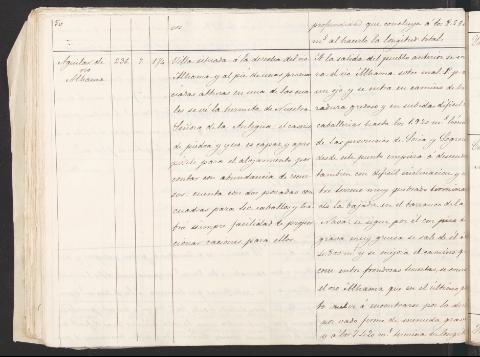 50
profundidad que concluye á los
m.s al hacerlo la longitud total.
Aguilar de
rio
Alhama
236
2
Villa situada á la derecha del rio
Alhama y al pie de unas pronun
ciadas alturas en una de las cua
les se vé la hermita de Nuestra
Señora de la Antigua, el caserio
de piedra y yeso es capaz y apro
pósito para el alojamiento, para
contar con abundancia de recur
sos. cuenta con dos posadas con
cuadras para 50 caballos y
siempre facilidad de propor
cionar raciones para ellos.
A la salida del pueblo anterior se
el rio Alhama sobre mal P.te
un ojo, y se entra en camino de
radura gredoso y en subida dificil
caballerias hasta los 1.920 m.s
de las provincias de Soria y Logroño
desde este punto empieza á descender
tambien con dificil inclinacion y
bre terreno muy quebrado
do la bajada en el barranco de la
Nava. se sigue por él con piso
grava muy gruesa se sale de él
m.s y se mejora el camino
corre entre frondosas huertas, se
el rio Alhama que en el último
to vuelve á encontrarse por la
por vado firme de menuda grava
y á los 7.420 m.s termina la longitud